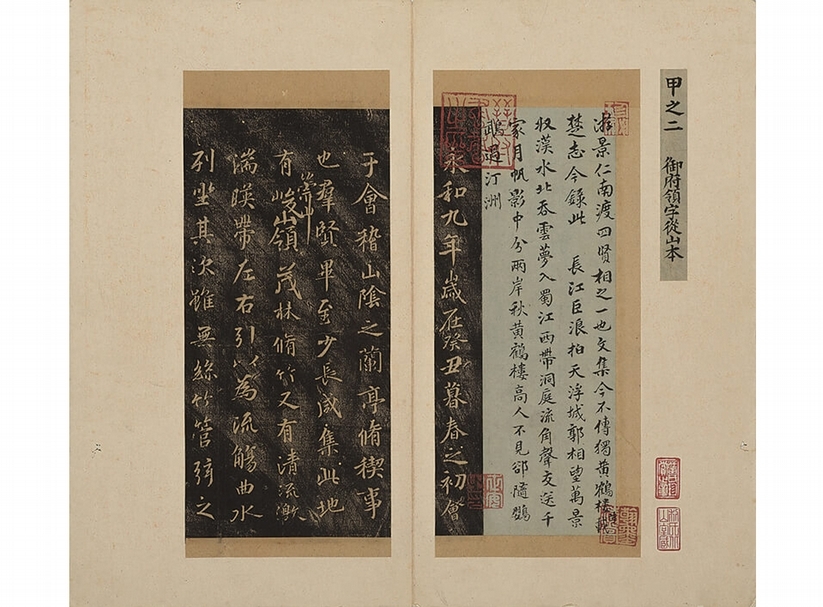 甲之二　御府領字從山本
游景仁南渡四賢相之一也文集今不傳獨黃鶴樓
楚志今錄此　長江巨浪拍天浮城郭相望萬景
収漢水北吞雲夢入蜀江西帶洞庭流角聲交送千
家月帆影中分兩岸秋黃鶴樓高人不見卻隨鸚
鵡過汀洲
永和九年歲在癸丑暮春之初會
于會稽山陰之蘭亭脩稧事
也羣賢畢至少長咸集此地
有崇山峻領茂林脩竹又有清流激
湍暎帶左右引以為流觴曲水
列坐其次雖無絲竹管弦之